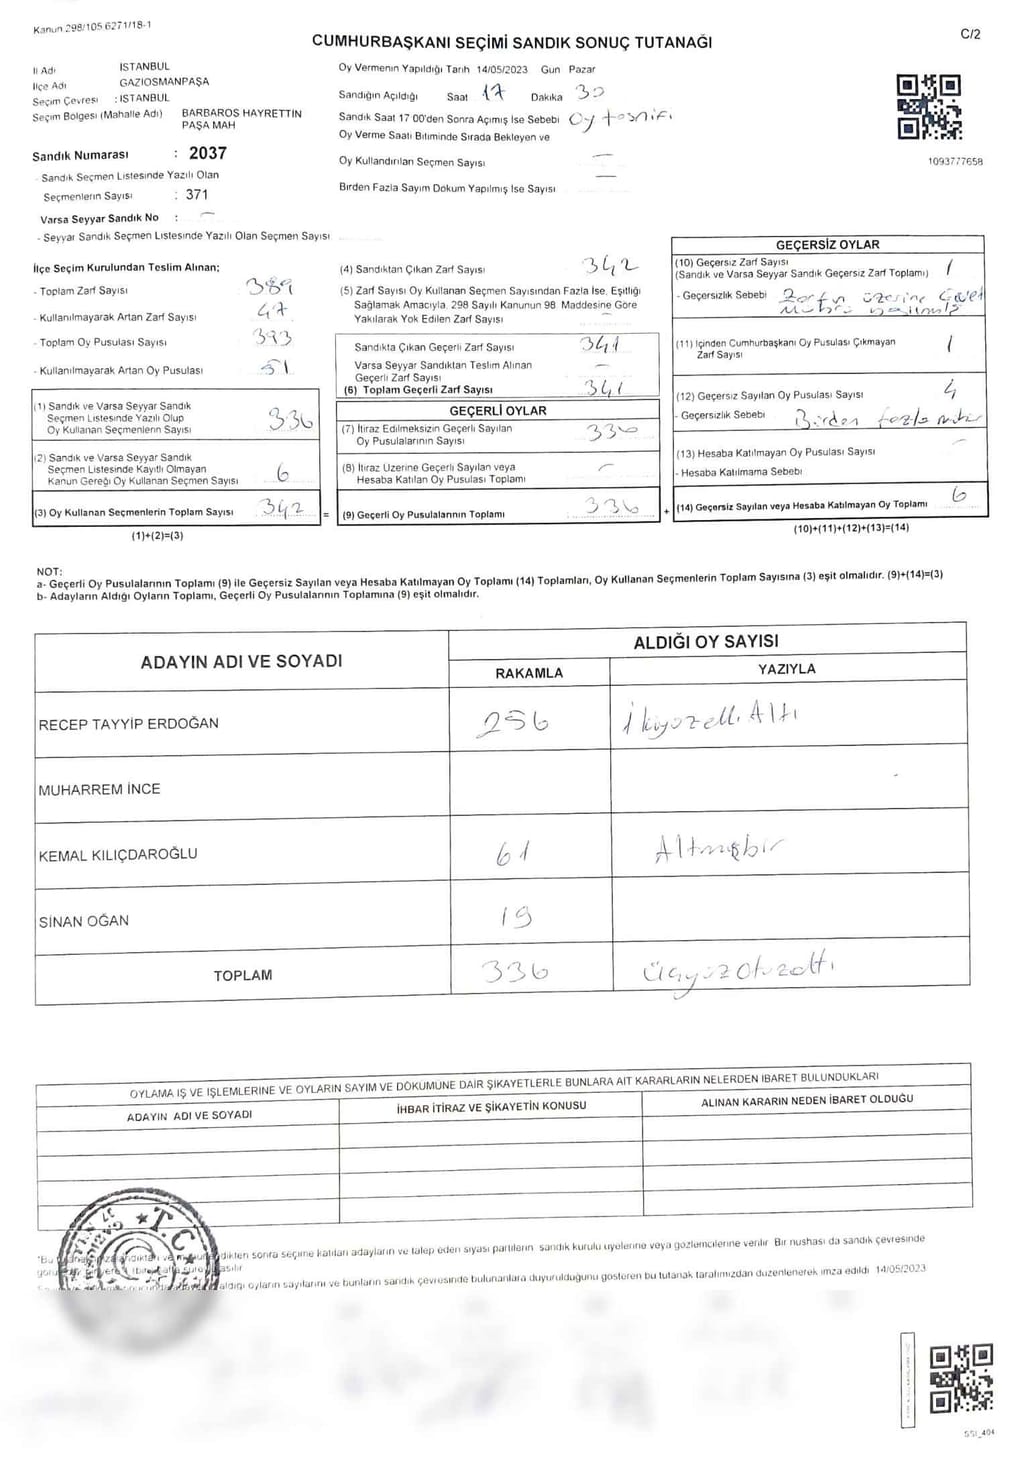 Kanun 298/105 6271/18-1
CUMHURBAŞKANI SEÇİMİ SANDIK SONUÇ TUTANAĞI
C/2
İl Adı İSTANBUL
İlçe Adı GAZİOSMANPAŞA
Seçim Çevresi : İSTANBUL
Seçim Bölgesi (Mahalle Adı) BARBAROS HAYRETTİN
PAŞA MAH
Sandık Numarası : 2037
- Sandık Seçmen Listesinde Yazılı Olan
Seçmenlerin Sayısı : 371
Varsa Seyyar Sandık No : —
- Seyyar Sandık Seçmen Listesinde Yazılı Olan Seçmen Sayısı
Oy Vermenin Yapıldığı Tarih 14/05/2023 Gün Pazar
Sandığın Açıldığı Saat 17 Dakika 30
Sandık Saat 17 00'den Sonra Açımış İse Sebebi Oy tasnifi
Oy Verme Saati Bitiminde Sırada Bekleyen ve
Oy Kullandırılan Seçmen Sayısı —
Birden Fazla Sayım Döküm Yapılmış İse Sayısı —
1093777658
İlçe Seçim Kurulundan Teslim Alınan;
- Toplam Zarf Sayısı 389
- Kullanılmayarak Artan Zarf Sayısı 47
- Toplam Oy Pusulası Sayısı 393
- Kullanılmayarak Artan Oy Pusulası 51
(1) Sandık ve Varsa Seyyar Sandık
Seçmen Listesinde Yazılı Olup
Oy Kullanan Seçmenlerin Sayısı 336
(2) Sandık ve Varsa Seyyar Sandık
Seçmen Listesinde Kayıtlı Olmayan
Kanun Gereği Oy Kullanan Seçmen Sayısı 6
(3) Oy Kullanan Seçmenlerin Toplam Sayısı 342 =
(1)+(2)=(3)
(4) Sandıktan Çıkan Zarf Sayısı 342
(5) Zarf Sayısı Oy Kullanan Seçmen Sayısından Fazla İse, Eşitliği
Sağlamak Amacıyla, 298 Sayılı Kanunun 98. Maddesine Göre
Yakılarak Yok Edilen Zarf Sayısı —
Sandıkta Çıkan Geçerli Zarf Sayısı 341
Varsa Seyyar Sandıktan Teslim Alınan
Geçerli Zarf Sayısı —
(6) Toplam Geçerli Zarf Sayısı 341
GEÇERLİ OYLAR
(7) İtiraz Edilmeksizin Geçerli Sayılan
Oy Pusulalarının Sayısı 336
(8) İtiraz Üzerine Geçerli Sayılan veya
Hesaba Katılan Oy Pusulası Toplamı —
(9) Geçerli Oy Pusulalarının Toplamı 336 +
GEÇERSİZ OYLAR
(10) Geçersiz Zarf Sayısı
(Sandık ve Varsa Seyyar Sandık Geçersiz Zarf Toplamı) 1
- Geçersizlik Sebebi Zarfın üzerine Evet
Mührü
(11) İçinden Cumhurbaşkanı Oy Pusulası Çıkmayan
Zarf Sayısı 1
(12) Geçersiz Sayılan Oy Pusulası Sayısı 4
- Geçersizlik Sebebi Birden fazla mühür
(13) Hesaba Katılmayan Oy Pusulası Sayısı —
- Hesaba Katılmama Sebebi
(14) Geçersiz Sayılan veya Hesaba Katılmayan Oy Toplamı 6
(10)+(11)+(12)+(13)=(14)
NOT:
a- Geçerli Oy Pusulalarının Toplamı (9) ile Geçersiz Sayılan veya Hesaba Katılmayan Oy Toplamı (14) Toplamları, Oy Kullanan Seçmenlerin Toplam Sayısına (3) eşit olmalıdır. (9)+(14)=(3)
b- Adayların Aldığı Oyların Toplamı, Geçerli Oy Pusulalarının Toplamına (9) eşit olmalıdır.
ADAYIN ADI VE SOYADI
ALDIĞI OY SAYISI
RAKAMLA YAZIYLA
RECEP TAYYİP ERDOĞAN 256 İkiyüzelli Altı
MUHARREM İNCE
KEMAL KILIÇDAROĞLU 61 Altmışbir
SİNAN OĞAN 19
TOPLAM 336 Üçyüz Otuzaltı
OYLAMA İŞ VE İŞLEMLERİNE VE OYLARIN SAYIM VE DÖKÜMÜNE DAİR ŞİKAYETLERLE BUNLARA AİT KARARLARIN NELERDEN İBARET BULUNDUKLARI
ADAYIN ADI VE SOYADI İHBAR İTİRAZ VE ŞİKAYETİN KONUSU ALINAN KARARIN NEDEN İBARET OLDUĞU
T.C.
sonra seçime katılan adayların ve talep eden siyasi partilerin sandık kurulu üyelerine veya gözlemcilerine verilir. Bir nüshası da sandık çevresinde
oyların sayılarını ve bunların sandık çevresinde bulunanlara duyurulduğunu gösteren bu tutanak tarafımızdan düzenlenerek imza edildi 14/05/2023